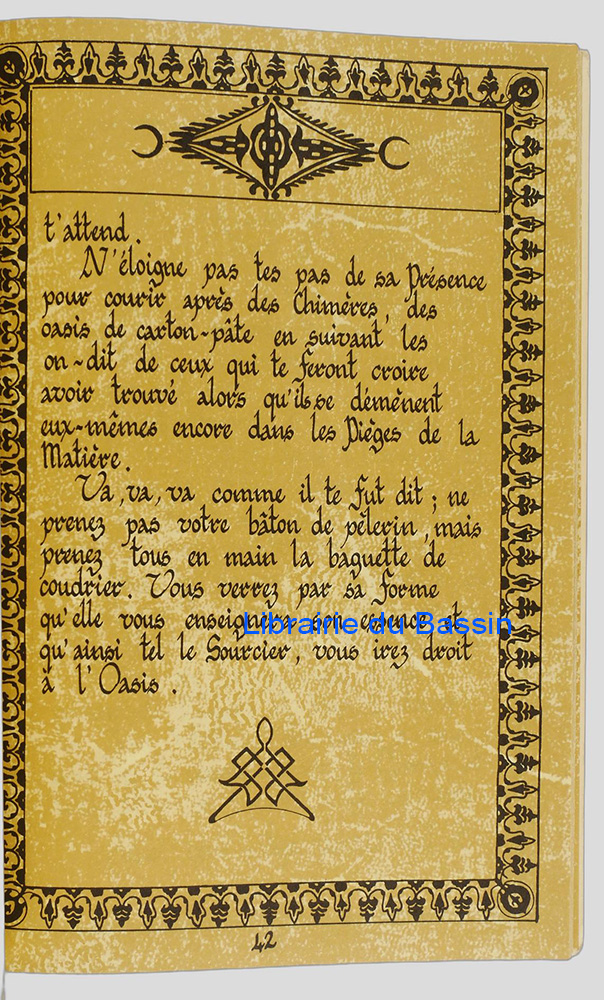 t'attend.
N'éloigne pas tes pas de sa Présence
pour courir après des Chimères, des
oasis de carton-pâte en suivant les
on-dit de ceux qui te feront croire
avoir trouvé alors qu'ils se démènent
eux-mêmes encore dans les Pièges de la
Matière.
Va, va, va comme il te fut dit ; ne
prenez pas votre bâton de pélerin, mais
prenez tous en main la baguette de
coudrier. Vous verrez par sa forme
qu'elle vous enseignera son essence et
Librairie du Bassin
qu'ainsi tel le Sourcier, vous irez droit
à l'Oasis.
42